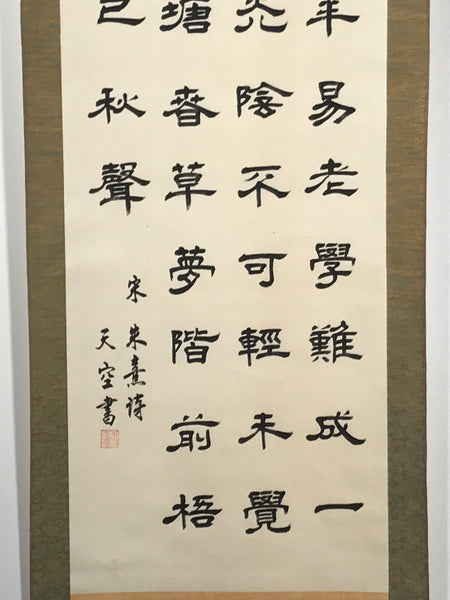 年易老學難成一
光陰不可輕未覺
塘春草夢階前梧
已秋聲
宋 朱熹詩
天空書